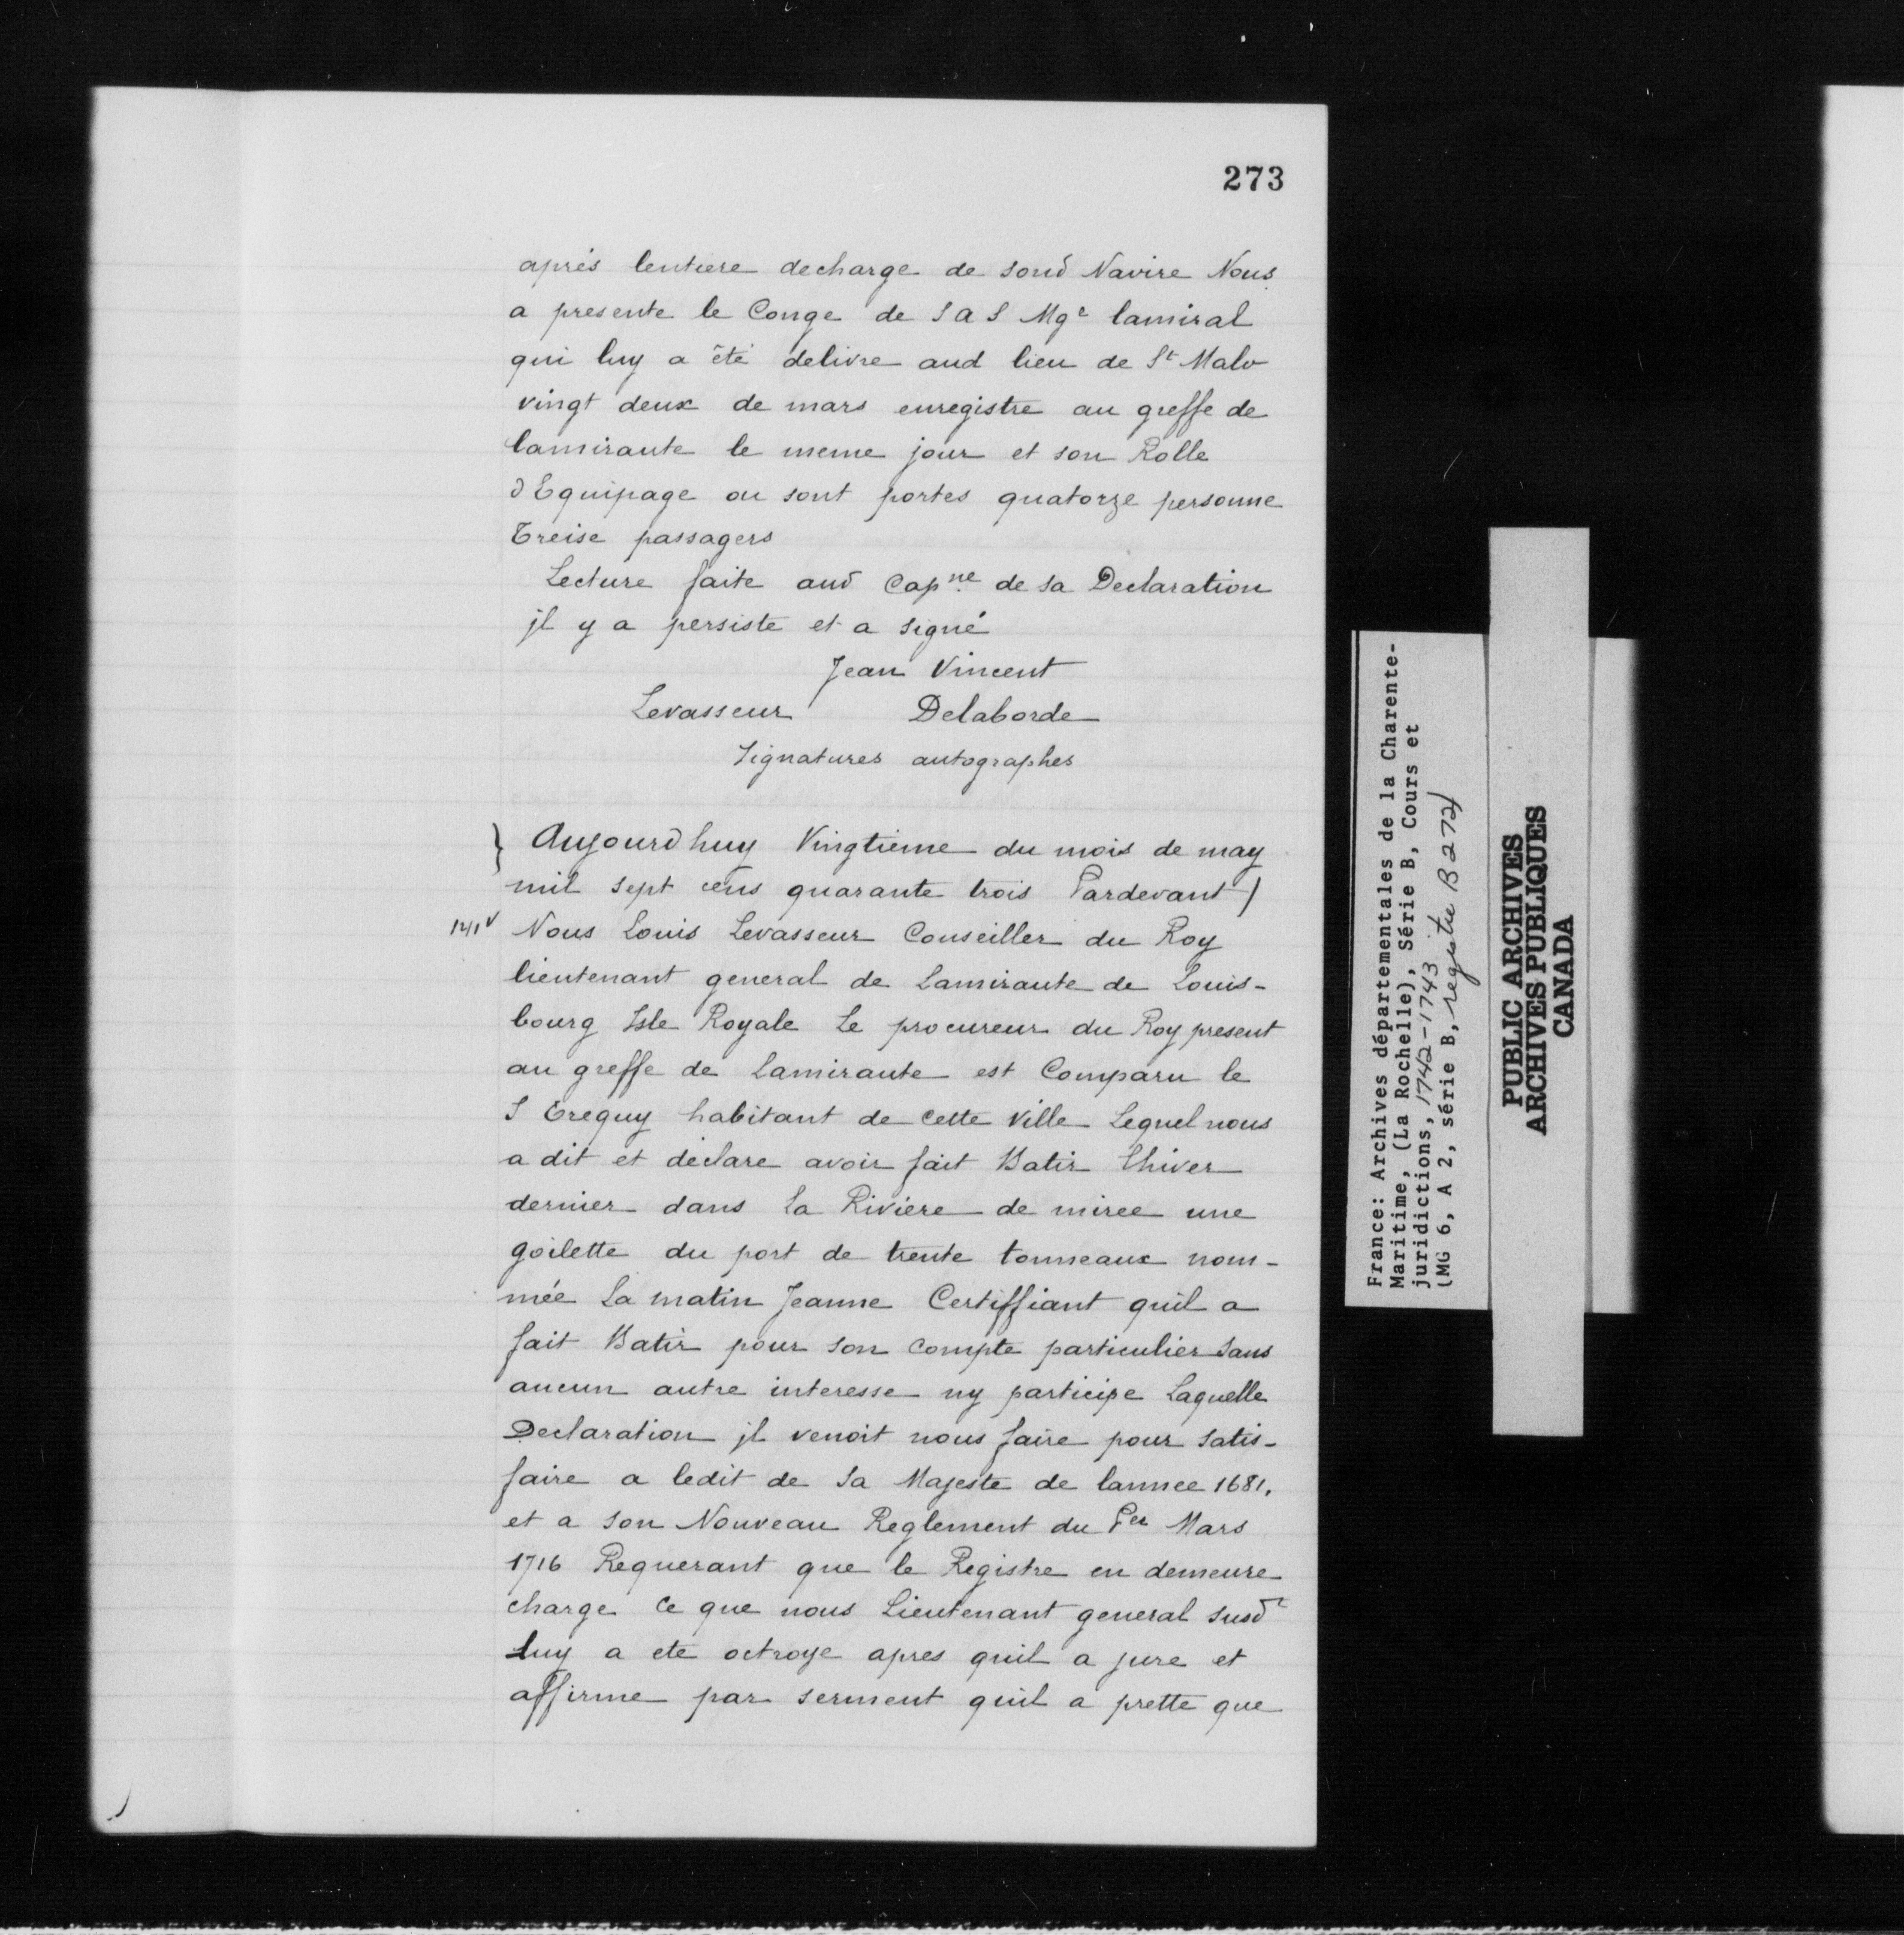 273
aprés lentiere decharge de sond Navire Nous
a presente le Conge de S a S Mgr lamiral
qui luy a été delivre aud lieu de St Malo
vingt deux de mars enregistre au greffe de
lamiraute le meme jour et son Rolle
d Equipage ou sont portes quatorze personne
Treise passagers
Lecture faite aud Capne de sa Declaration
jl y a persiste et a signé
Jean Vincent
Levasseur Delaborde
Signatures autographes
} Aujourd huy Vingtieme du mois de may
mil sept cens quarante trois Pardevant /
141v Nous Louis Levasseur Conseiller du Roy
lieutenant general de Lamiraute de Louis-
bourg Isle Royale Le procureur du Roy present
au greffe de Lamiraute est Comparu le
S Ereguy habitant de cette Ville Lequel nous
a dit et déclare avoir fait Batir lhiver
dernier dans la Riviere de miree une
goilette du port de trente tonneaux nom-
mée La matin Jeanne Certiffiant quil a
fait Batir pour son compte particulier sans
aucun autre interesse ny participe Laquelle
Declaration jl venoit nous faire pour satis-
faire a ledit de Sa Majeste de lannee 1681.
et a son Nouveau Reglement du Per Mars
1716 Requerant que le Registre en demeure
charge Ce que nous Lieutenant general susdt
luy a ete octroye apres quil a jure et
affirme par serment quil a prette que
France: Archives départementales de la Charente-
Maritime, (La Rochelle), Série B, Cours et
juridictions, 1742-1743
(MG 6, A 2, série B, registre B 272)
PUBLIC ARCHIVES
ARCHIVES PUBLIQUES
CANADA